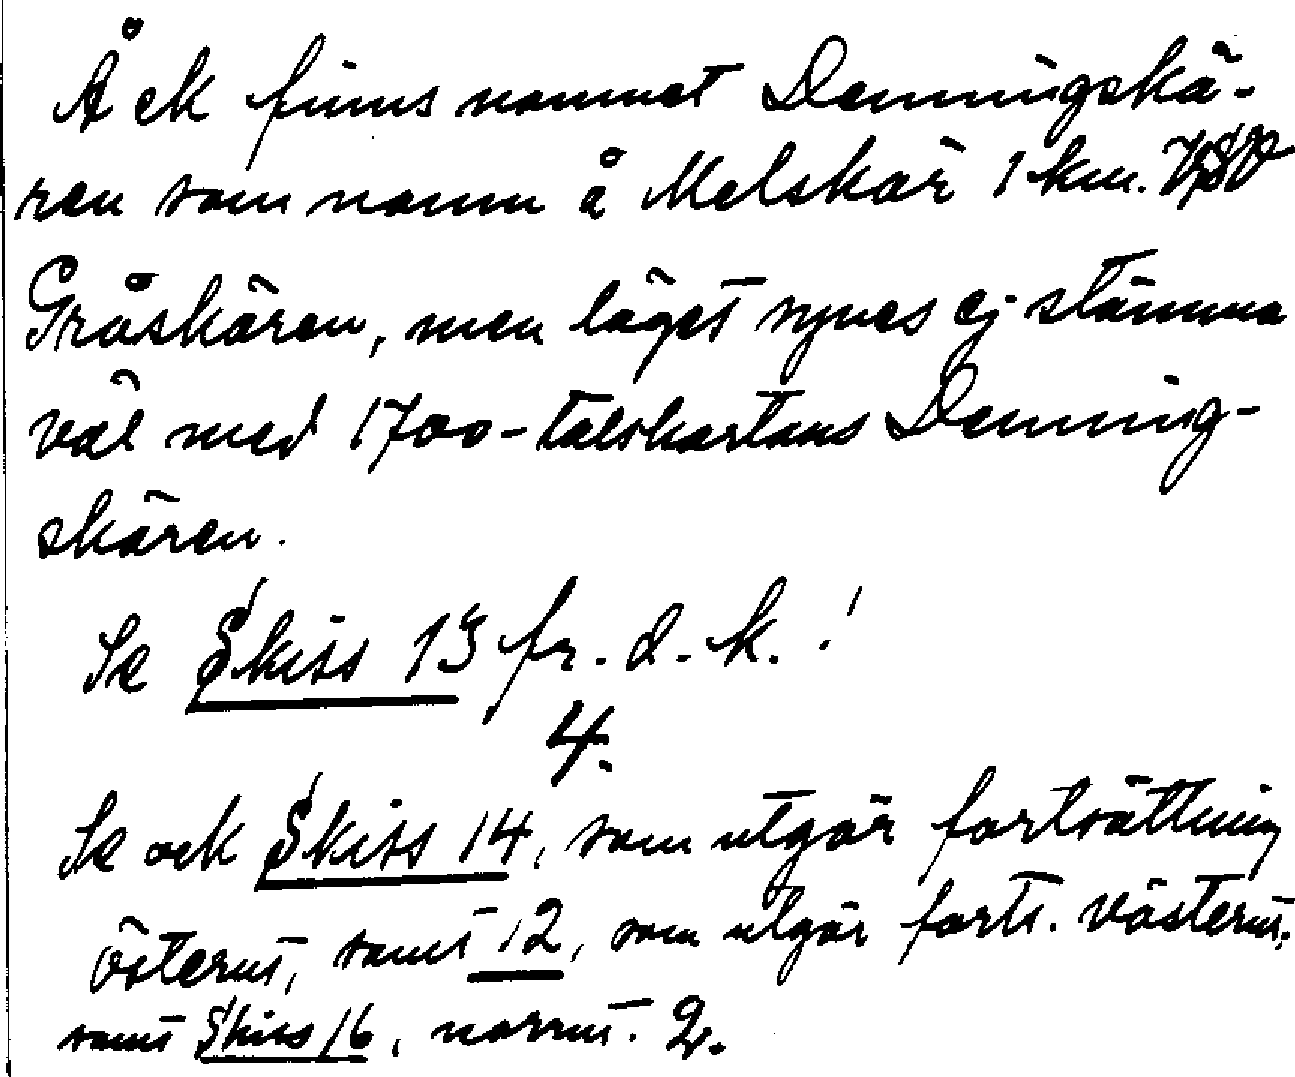 Å ek finns namnet Denningskä-
ren som namn å Melskär 1 km.
Gråskären, men läget synes ej stämma
väl med 1700-talskartans Denning-
skären.
Se Skiss 13 fr. d. k.!
4.
Se ock Skiss 14, som utgör fortsättning
österut, samt 12, som utgör forts. västerut,
samt Skiss 16, norrut. 2.